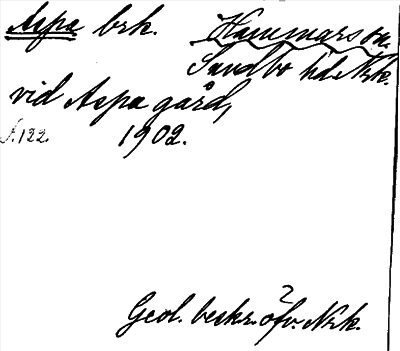 Aspa brk. Hammars sn.
Sundbo hd. Nrk.
vid Aspa gård,
s. 122. 1902.
Geol. beskr. öfv. Nrk.